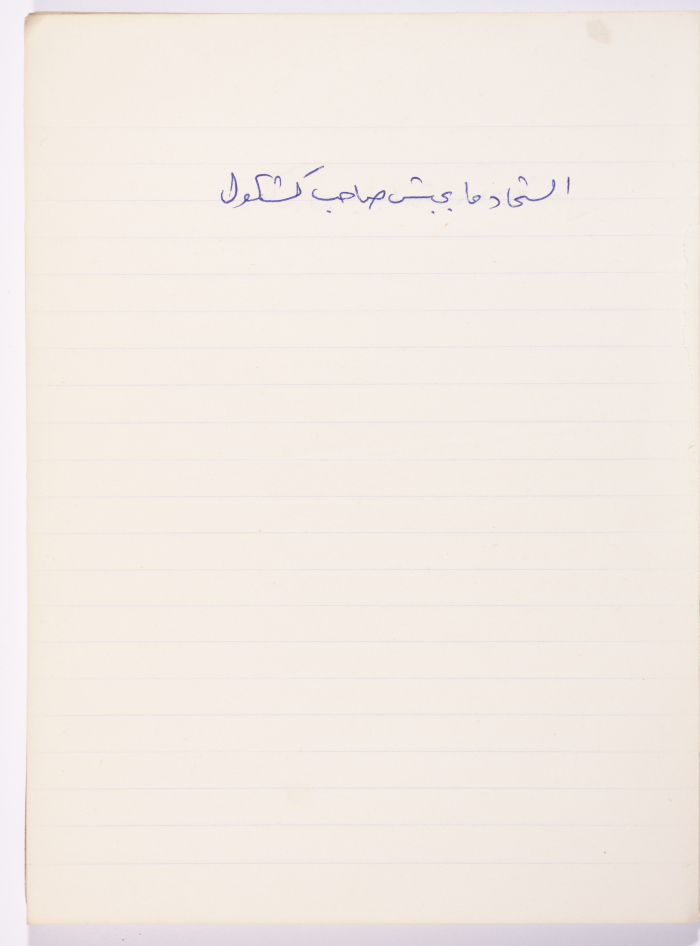 الشحاد ما بحبش صاحب كشكول